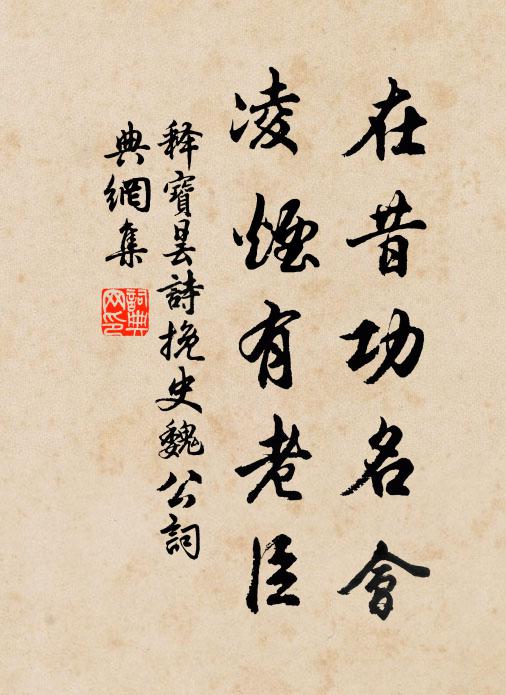 在昔功名會
凌煙有老臣
釋寶曇詩挽史魏公詞
典網集
詞典網印